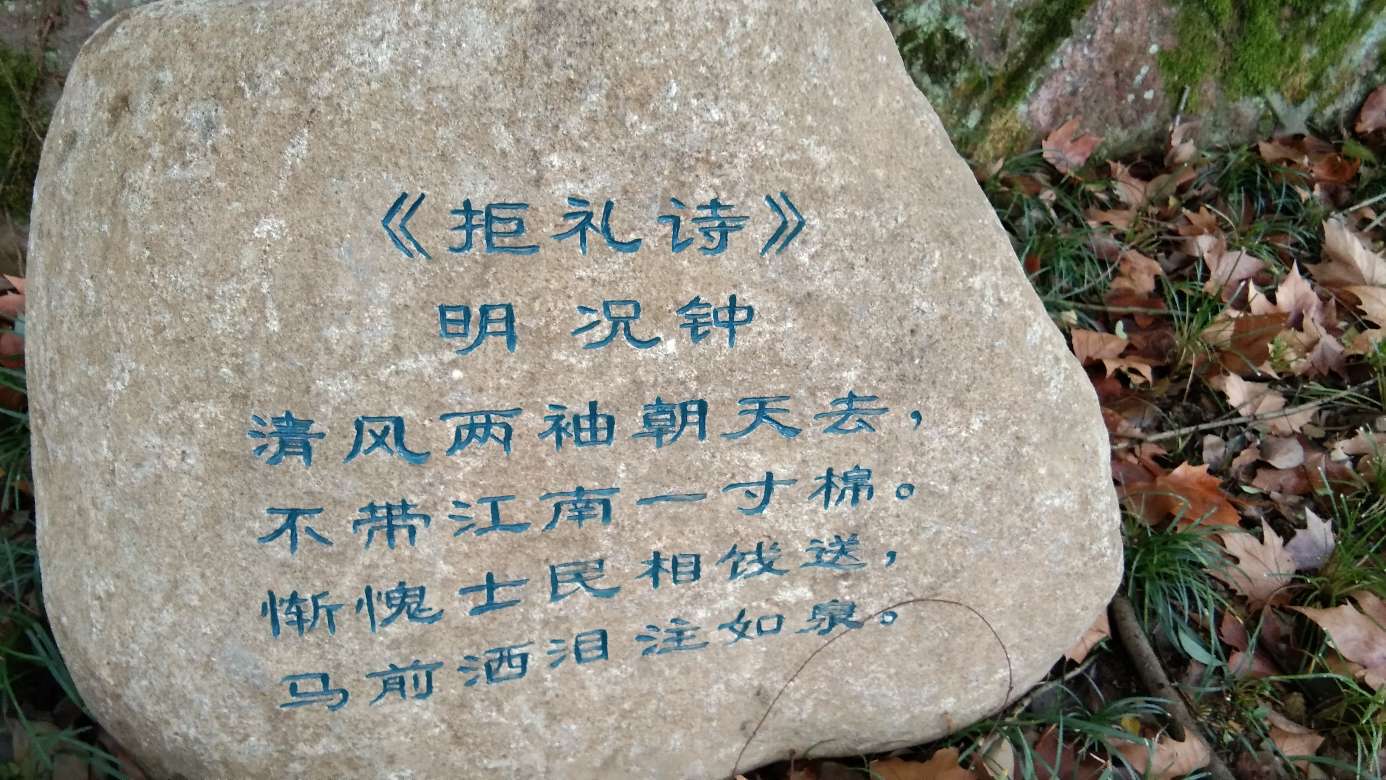 《拒礼诗》
明 况钟
清风两袖朝天去，
不带江南一寸棉。
惭愧士民相饯送，
马前洒泪注如泉。